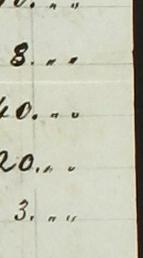 8. " "
40. " "
20. " "
3. " "